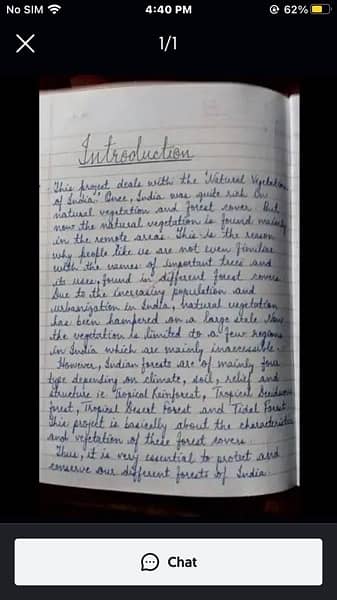 No SIM
4:40 PM
62%
1/1
Introduction
This project deals with the "Natural Vegetation
of India." Once, India was quite rich in
natural vegetation and forest cover. But
now the natural vegetation is found mainly
in the remote areas. This is the reason
why people like us are not even fimiliar
with the names of important trees and
its uses, found in different forest covers.
Due to the increasing population and
urbanization in India, natural vegetation
has been hampered on a large scale. Now
the vegetation is limited to a few regions
in India which are mainly inaccessible.
However, Indian forests are of mainly four
type depending on climate, soil, relief and
structure ie. Tropical Rainforest, Tropical Deciduous
forest, Tropical Desert Forest and Tidel Forest.
This project is basically about the characteristics
and vefetation of these forest covers.
Thus, it is very essential to protect and
conserve our different forests of India.
Chat